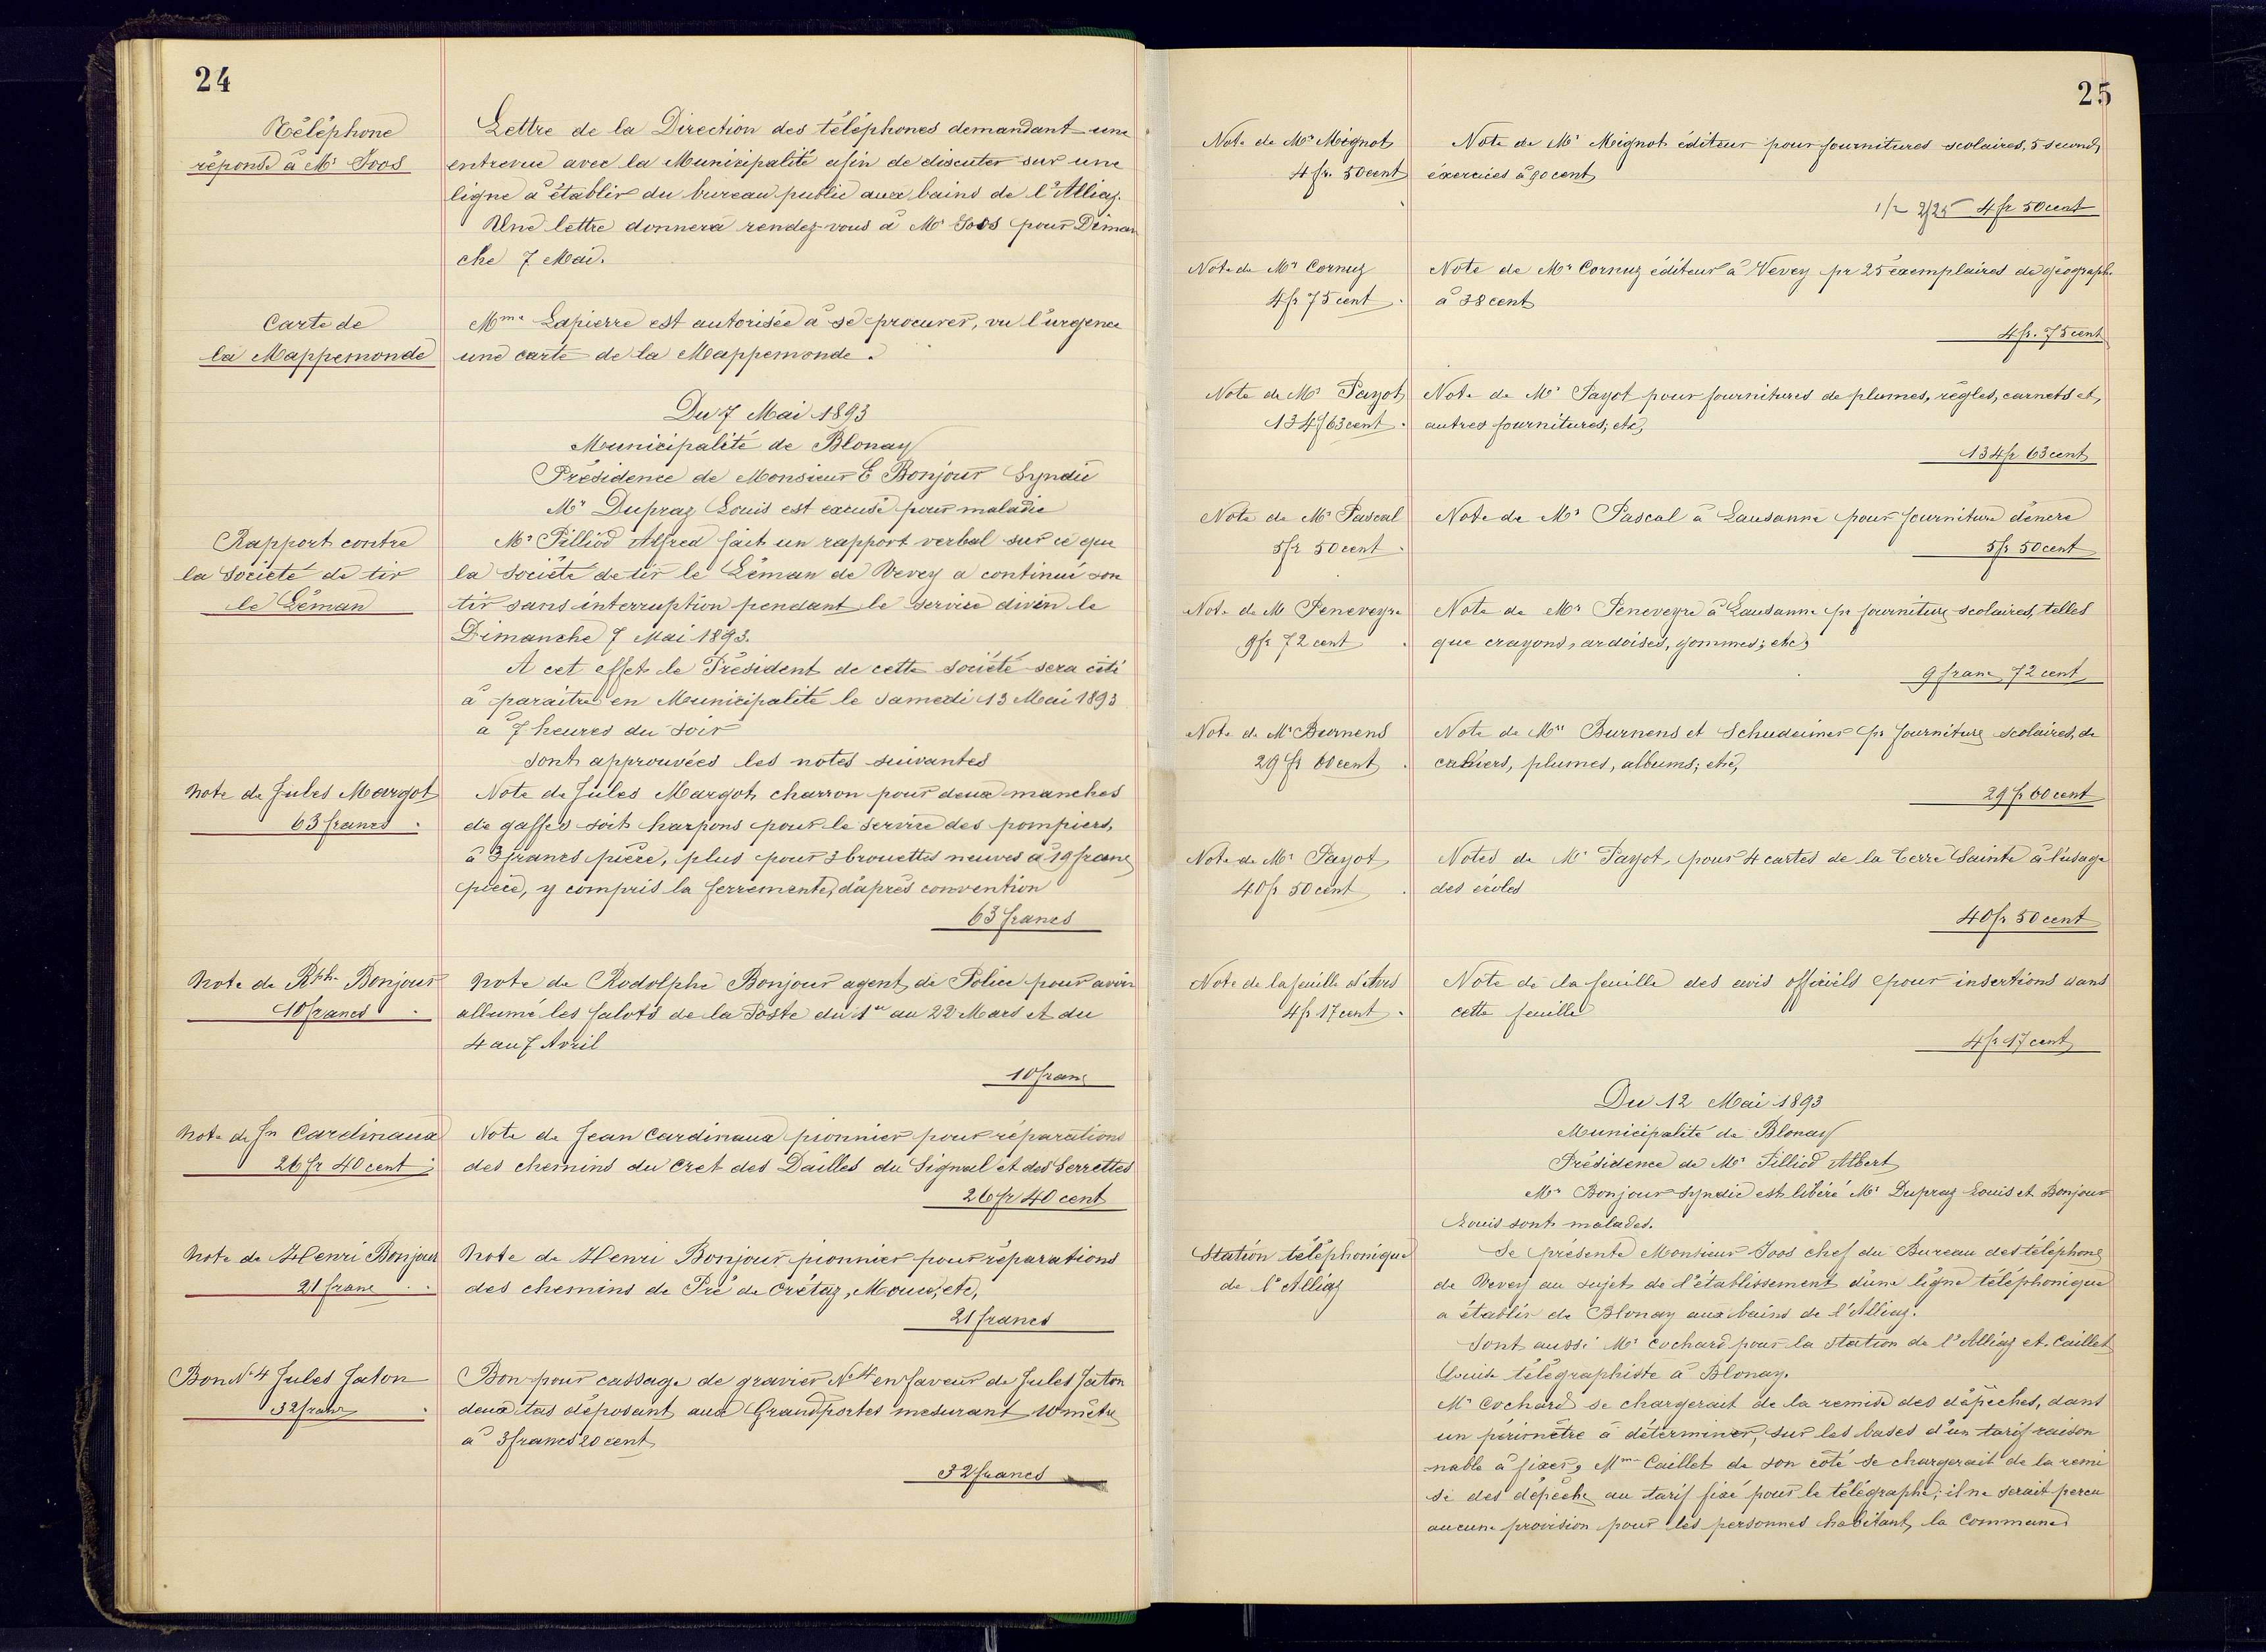 24
Téléphone
réponse à Mr Joos
Lettre de la Direction des téléphones demandant une
entrevue avec la Municipalité afin de discuter sur une
ligne à établir du bureau public aux bains de l'Alliaz.
Une lettre donnera rendez-vous à Mr Joos pour Diman
che 7 Mai.
Carte de
la Mappemonde
Mme Lapierre est autorisée à se procurer, vu l'urgence
une carte de la Mappemonde.
Du 7 Mai 1893
Municipalité de Blonay
Présidence de Monsieur E Bonjour Syndic
Mr Dupraz Louis est excusé pour maladie
Rapport contre
la Société de tir
le Léman
Mr Pilliod Alfred fait un rapport verbal sur ce que
la Société de tir le Léman de Vevey a continué son
tir sans interruption pendant le service divin le
Dimanche 7 Mai 1893.
A cet effet le Président de cette société sera cité
à paraitre en Municipalité le Samedi 13 Mai 1893
à 7 heures du soir
Sont approuvées les notes suivantes
Note de Jules Margot
63 francs
Note de Jules Margot charron pour deux manches
de gaffes soit harpons pour le service des pompiers,
à 3 francs pièce, plus pour 3 brouettes neuves à 19 francs
pièce, y compris la ferremente, d'après convention
63 francs
Note de Rph Bonjour
10 francs
Note de Rodolphe Bonjour agent de Police pour avoir
allumé les falots de la Poste du 1er au 22 Mars et du
4 au 7 Avril
10 franc
Note de Jn Cardinaux
26 fr 40 cent
Note de Jean Cardinaux pionnier pour réparations
des chemins du Cret des Dailles du Signal et des Serrettes
26 fr 40 cent
Note de Henri Bonjour
21 franc
Note de Henri Bonjour pionnier pour réparations
des chemins de Pré de Crétaz, etc,
21 francs
Bon No 4 Jules Jaton
32 franc
Bon pour cassage de gravier No 4 en faveur de Jules Jaton
deux tas déposant aux Grandportes mesurant 10 mètre
à 3 francs 20 cent
32 francs
25
Note de Mr Mignot
4 fr. 50 cent
Note de Mr Mignot éditeur pour fournitures scolaires, 5 seconds
éxercices à 90 cent
4 fr 50 cent
Note de Mr Cornuz
4 fr 75 cent
Note de Mr Cornuz éditeur à Vevey pr 25 éxemplaires de géograph
à 38 cent
4 fr. 75 cent
Note de Mr Payot
134 f 63 cent
Note de Mr Payot pour fournitures de plumes, règles, carnets et,
autres fournitures; etc,
134 fr 63 cent
Note de Mr Pascal
5 fr 50 cent
Note de Mr Pascal à Lausanne pour fourniture d'encre
5 fr 50 cent
Note de M Peneveyre
9 fr 72 cent
Note de Mr Peneveyre à Lausanne pr fournitures scolaires, telles
que crayons, ardoises, gommes; etc,
9 franc 72 cent
Note de Mr Burnens
29 fr 60 cent
Note de Mrs Burnens et pr fournitures scolaires, de
cahiers, plumes, albums; etc,
29 fr 60 cent
Note de Mr Payot
40 fr 50 cent
Notes de Mr Payot, pour 4 cartes de la Terre Sainte à l'usage
des écoles
40 fr 50 cent
Note de la feuille d'Avis
4 fr 17 cent
Note de la feuille des avis officiels pour insertions dans
cette feuille
4 fr 17 cent
Du 12 Mai 1893
Municipalité de Blonay
Présidence de Mr Pilliod Albert
Mr Bonjour Syndic est libéré Mr Dupraz Louis et Bonjour
Louis sont malades.
Station téléphonique
de l'Alliaz
Se présente Monsieur Joos chef du Bureau des téléphones
de Vevey au sujet de l'établissement d'une ligne téléphonique
a établir de Blonay aux bains de l'Alliaz.
Sont aussi Mr Cochard pour la Station de l'Alliaz et Caillet
Louise télégraphiste à Blonay.
Mr Cochard se chargerait de la remise des dépêches, dans
un périmètre à déterminer, sur les bases d'un tarif raison
nable à fixer, Mme Caillet de son côté se chargerait de la remi
se des dépêche au tarif fixé pour le télégraphe; il ne serait percu
aucune provision pour les personnes habitant la Commune